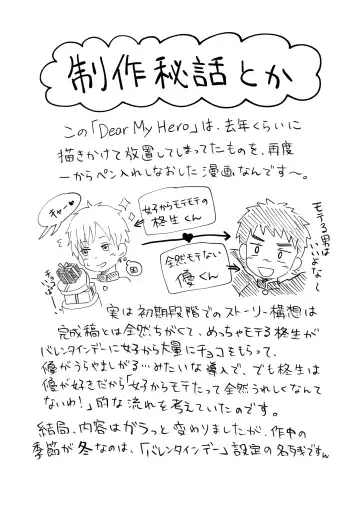 制作秘話とか
この「Dear My Hero」は、去年くらいに
描きかけて放置してしまってたものを、再度
一からペン入れしなおした漫画なんです〜。
チャー♡
女子からモテモテの
柊生くん
全然モテない
優くん
モテる男は
いいよな〜
チョコどっさり
実は初期段階でのストーリー構想は
完成稿とは全然ちがくて、めっちゃモテる柊生が
バレンタインデーに女子から大量にチョコをもらって、
優がうらやましがる…みたいな導入で、でも柊生は
優が好きだから「女子からモテたって全然うれしくなんて
ないわ!」的な流れを考えていたのです。
結局、内容はガラっと変わりましたが、作中の
季節が冬なのは、「バレンタインデー」設定の名残ですm